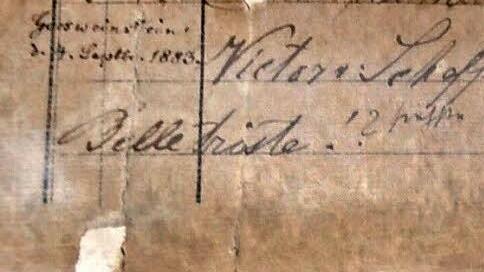 Goesweinstein
d. 4. Septbr. 1883.
Victor v. Scheff
Billetriste. !?